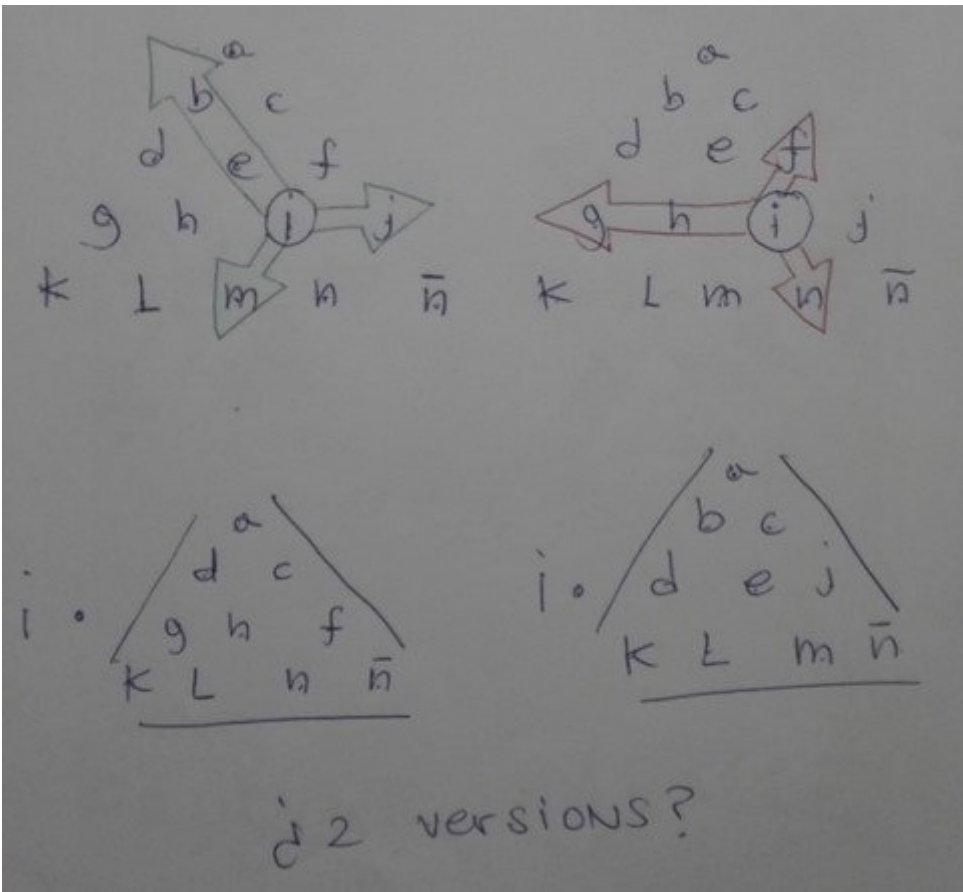 a
b c
d e f
g h i j
K L m n n̄
a
b c
d e f
g h i j
K L m n n̄
a
d c
i • g h f
K L n n̄
a
b c
i • d e j
K L m n̄
¿2 versions?